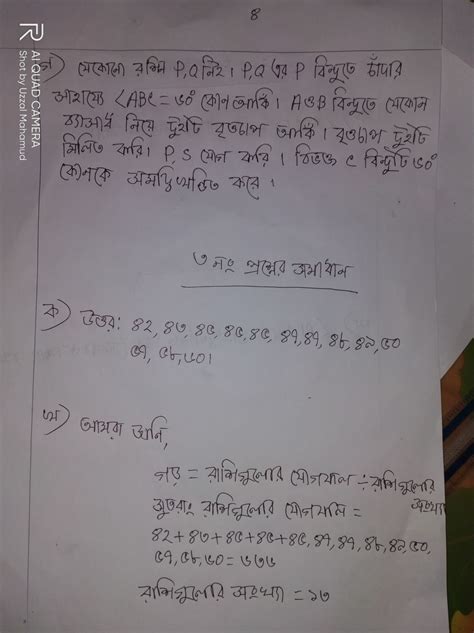 ৪
গ) যেকোনো রশ্মি P,Q নিই। P,Q এর P বিন্দুতে চাঁদার
সাহায্যে ∠ABC = ৬০° কোন আকি। A ও B বিন্দুতে যেকোন
ব্যাসার্ধ নিয়ে দুইটি বৃত্তচাপ আকি। বৃত্তচাপ দুইটি
মিলিত করি। P, S যোগ করি। বিভক্ত C বিন্দুটি ৬০°
কোনকে সমদ্বিখন্ডিত করে।
৩ নং প্রশ্নের সমাধান
ক) উত্তর: ৪২, ৪৩, ৪৫, ৪৫, ৪৫, ৪৭, ৪৭, ৪৮, ৪৯, ৫০
৫৭, ৫৮, ৬০।
খ) আমরা জানি,
গড় = রাশিগুলোর যোগফল ÷ রাশিগুলোর
সংখ্যা
সুতরাং রাশিগুলোর যোগফল =
৪২+৪৩+৪৫+৪৫+৪৫, ৪৭, ৪৭, ৪৮, ৪৯, ৫০,
৫৭, ৫৮, ৬০ = ৬৩৬
রাশিগুলোর সংখ্যা = ১৩
AI QUAD CAMERA
Shot by Uzzal Mahamud